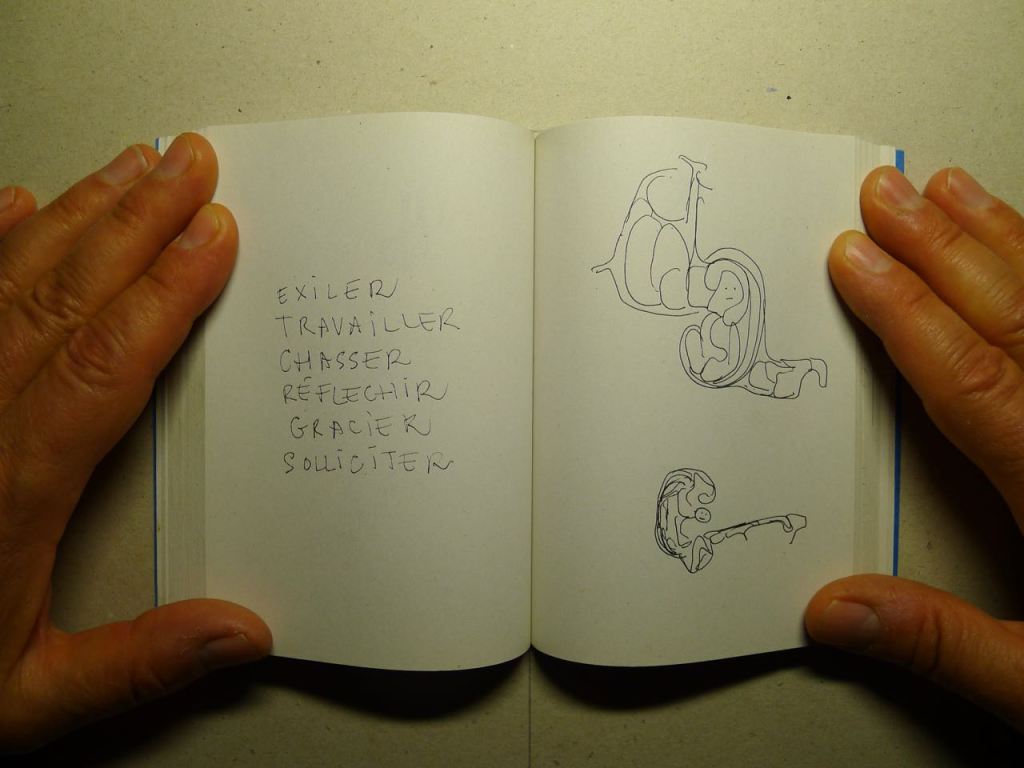 EXILER
TRAVAILLER
CHASSER
RÉFLECHIR
GRACIER
SOLLICITER